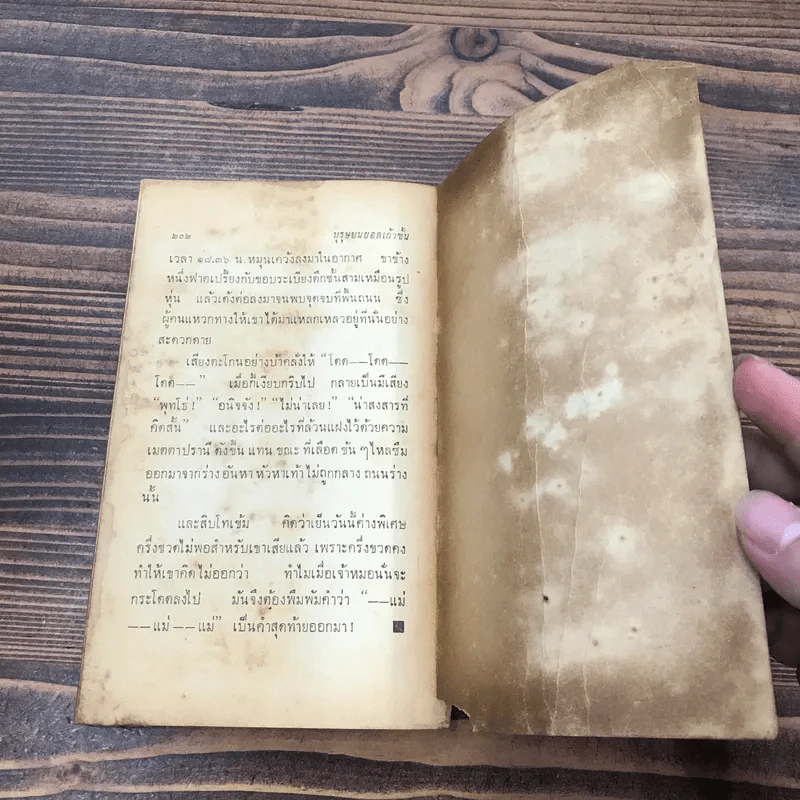 ๒๐๒ บุรุษบนยอดเก้าชั้น
เวลา ๑๘.๓๖ น. หมุนเคว้งลงมาในอากาศ ขาข้าง
หนึ่งฟาดเปรี้ยงกับขอบระเบียงตึกชั้นสามเหมือนรูป
หุ่น แล้วเด้งต่อลงมาจนพบจุดจบที่พื้นถนน ซึ่ง
ผู้คนแหวกทางให้เขาได้มาแหลกเหลวอยู่ที่นั่นอย่าง
สะดวกดาย
เสียงตะโกนอย่างบ้าคลั่งให้ “โดด——โดด——
โดด——” เมื่อกี้เงียบกริบไป กลายเป็นมีเสียง
“พุทโธ่!” “อนิจจัง!” “ไม่น่าเลย!” “น่าสงสารที่
คิดสั้น” และอะไรต่ออะไรที่ล้วนแฝงไว้ด้วยความ
เมตตาปรานี ดังขึ้น แทน ขณะ ที่เลือด ข้น ๆ ไหลซึม
ออกมาจากร่าง อันหา หัวหาเท้า ไม่ถูกกลาง ถนนร่าง
นั้น
และสิบโทเข้ม คิดว่าเย็นวันนี้ค่างพิเศษ
ครึ่งขวดไม่พอสำหรับเขาเสียแล้ว เพราะครึ่งขวดคง
ทำให้เขาคิดไม่ออกว่า ทำไมเมื่อเจ้าหมอนั่นจะ
กระโดดลงไป มันจึงต้องพึมพัมคำว่า “——แม่
——แม่ ——แม่” เป็นคำสุดท้ายออกมา!